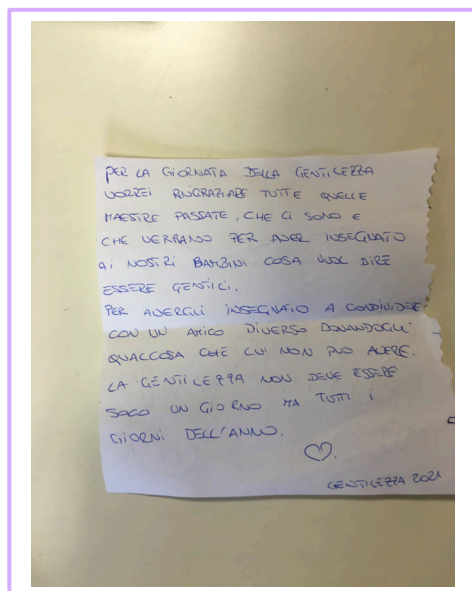 PER LA GIORNATA DELLA GENTILEZZA
VORREI RINGRAZIARE TUTTE QUELLE
MAESTRE PASSATE, CHE CI SONO E
CHE VERRANO PER AVER INSEGNATO
AI NOSTRI BAMBINI COSA VUOL DIRE
ESSERE GENTILI.
PER AVERGLI INSEGNATO A CONDIVIDERE
CON UN AMICO DIVERSO DONANDOGLI
QUALCOSA CHE LUI NON PUÒ AVERE.
LA GENTILEZZA NON DEVE ESSERE
SOLO UN GIORNO MA TUTTI I
GIORNI DELL'ANNO.
GENTILEZZA 2021